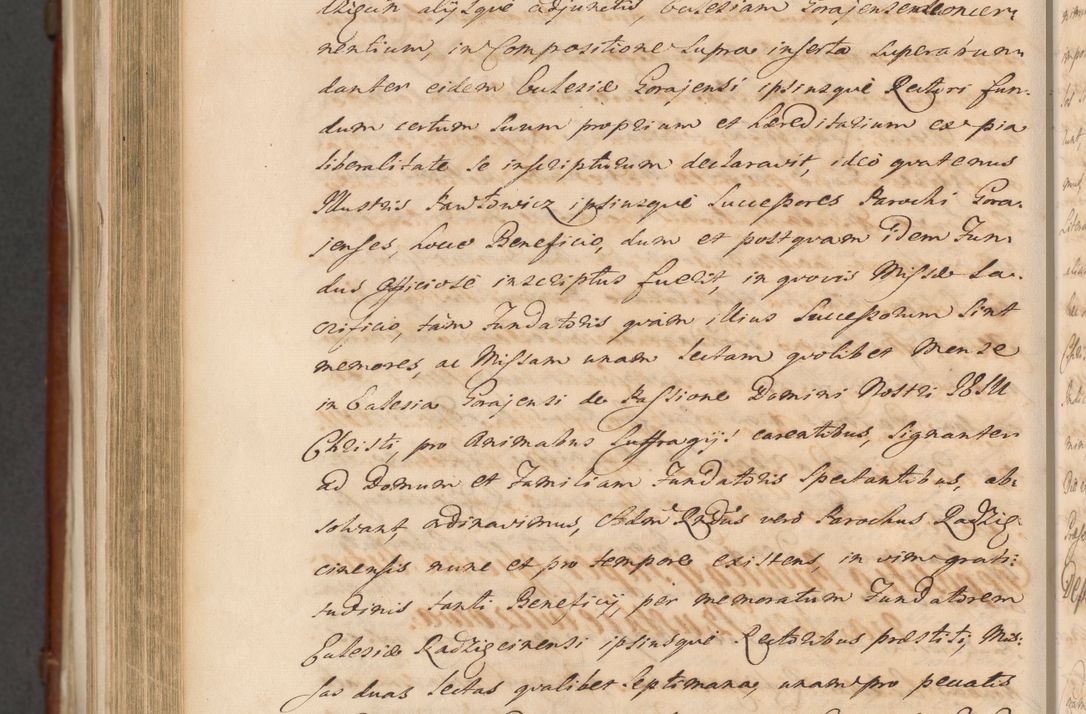 alijsque adjunctis, Ecclesiam Gorajensem concer-
nentium, in Compositione supra inserta superabun-
danter eidem Ecclesiæ Gorajensi ipsiusque Rectori fun-
dum certum suum proprium et hæreditarium ex pia
liberalitate se inscripturum declaravit, ideo quatenus
Illustris Pawłowicz ipsiusque Successores Parochi Gora-
jenses, hocce Beneficio, dum et postquam idem Fun-
dus officiose inscriptus fuerit, in quovis Missæ Sa-
crificio, tam Fundatoris quam illius Successorum sint
memores, ac Missam unam lectam quolibet Mense
in Ecclesia Gorajensi de Passione Domini Nostri JESU
Christi, pro Animabus suffragijs carentibus, signanter
ad Domum et Familiam Fundatoris spectantibus, ab-
solvant, ordinavimus, Adm Rndus vero Parochus Radzię-
cinensis nunc et pro tempore existens, in vim grati-
tudinis tanti Beneficij, per memoratum Fundatorem
Ecclesiæ Radzięcinensi ipsiusque Rectoribus præstiti, Mis-
sas duas lectas qualibet septimana, unam pro peccatis